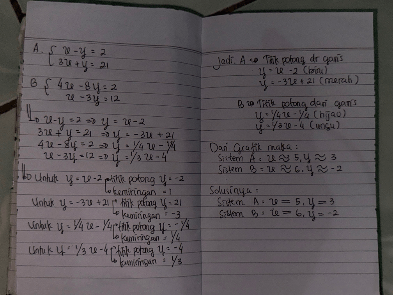 A. { x - y = 2
3x + y = 21
B. { 4x - 8y = 2
x - 3y = 12
x - y = 2 ⇒ y = x - 2
3x + y = 21 ⇒ y = -3x + 21
4x - 8y = 2 ⇒ y = 1/4 x - 1/4
x - 3y = 12 ⇒ y = 1/3 x - 4
Untuk y = x - 2 titik potong y = -2
kemiringan = 1
Untuk y = -3x + 21 titik potong y = 21
kemiringan = -3
Untuk y = 1/4 x - 1/4 titik potong y = -1/4
kemiringan = 1/4
Untuk y = 1/3 x - 4 titik potong y = -4
kemiringan = 1/3
Jadi A ⇒ Titik potong dr garis
y = x - 2 (biru)
y = -3x + 21 (merah)
B ⇒ Titik potong dari garis
y = 1/4 x - 1/4 (hijau)
y = 1/3 x - 4 (ungu)
Dari Grafik maka:
Sistem A: x ≈ 5, y ≈ 3
Sistem B: x ≈ 6, y ≈ -2
Solusinya:
Sistem A: x = 5, y = 3
Sistem B: x = 6, y = -2